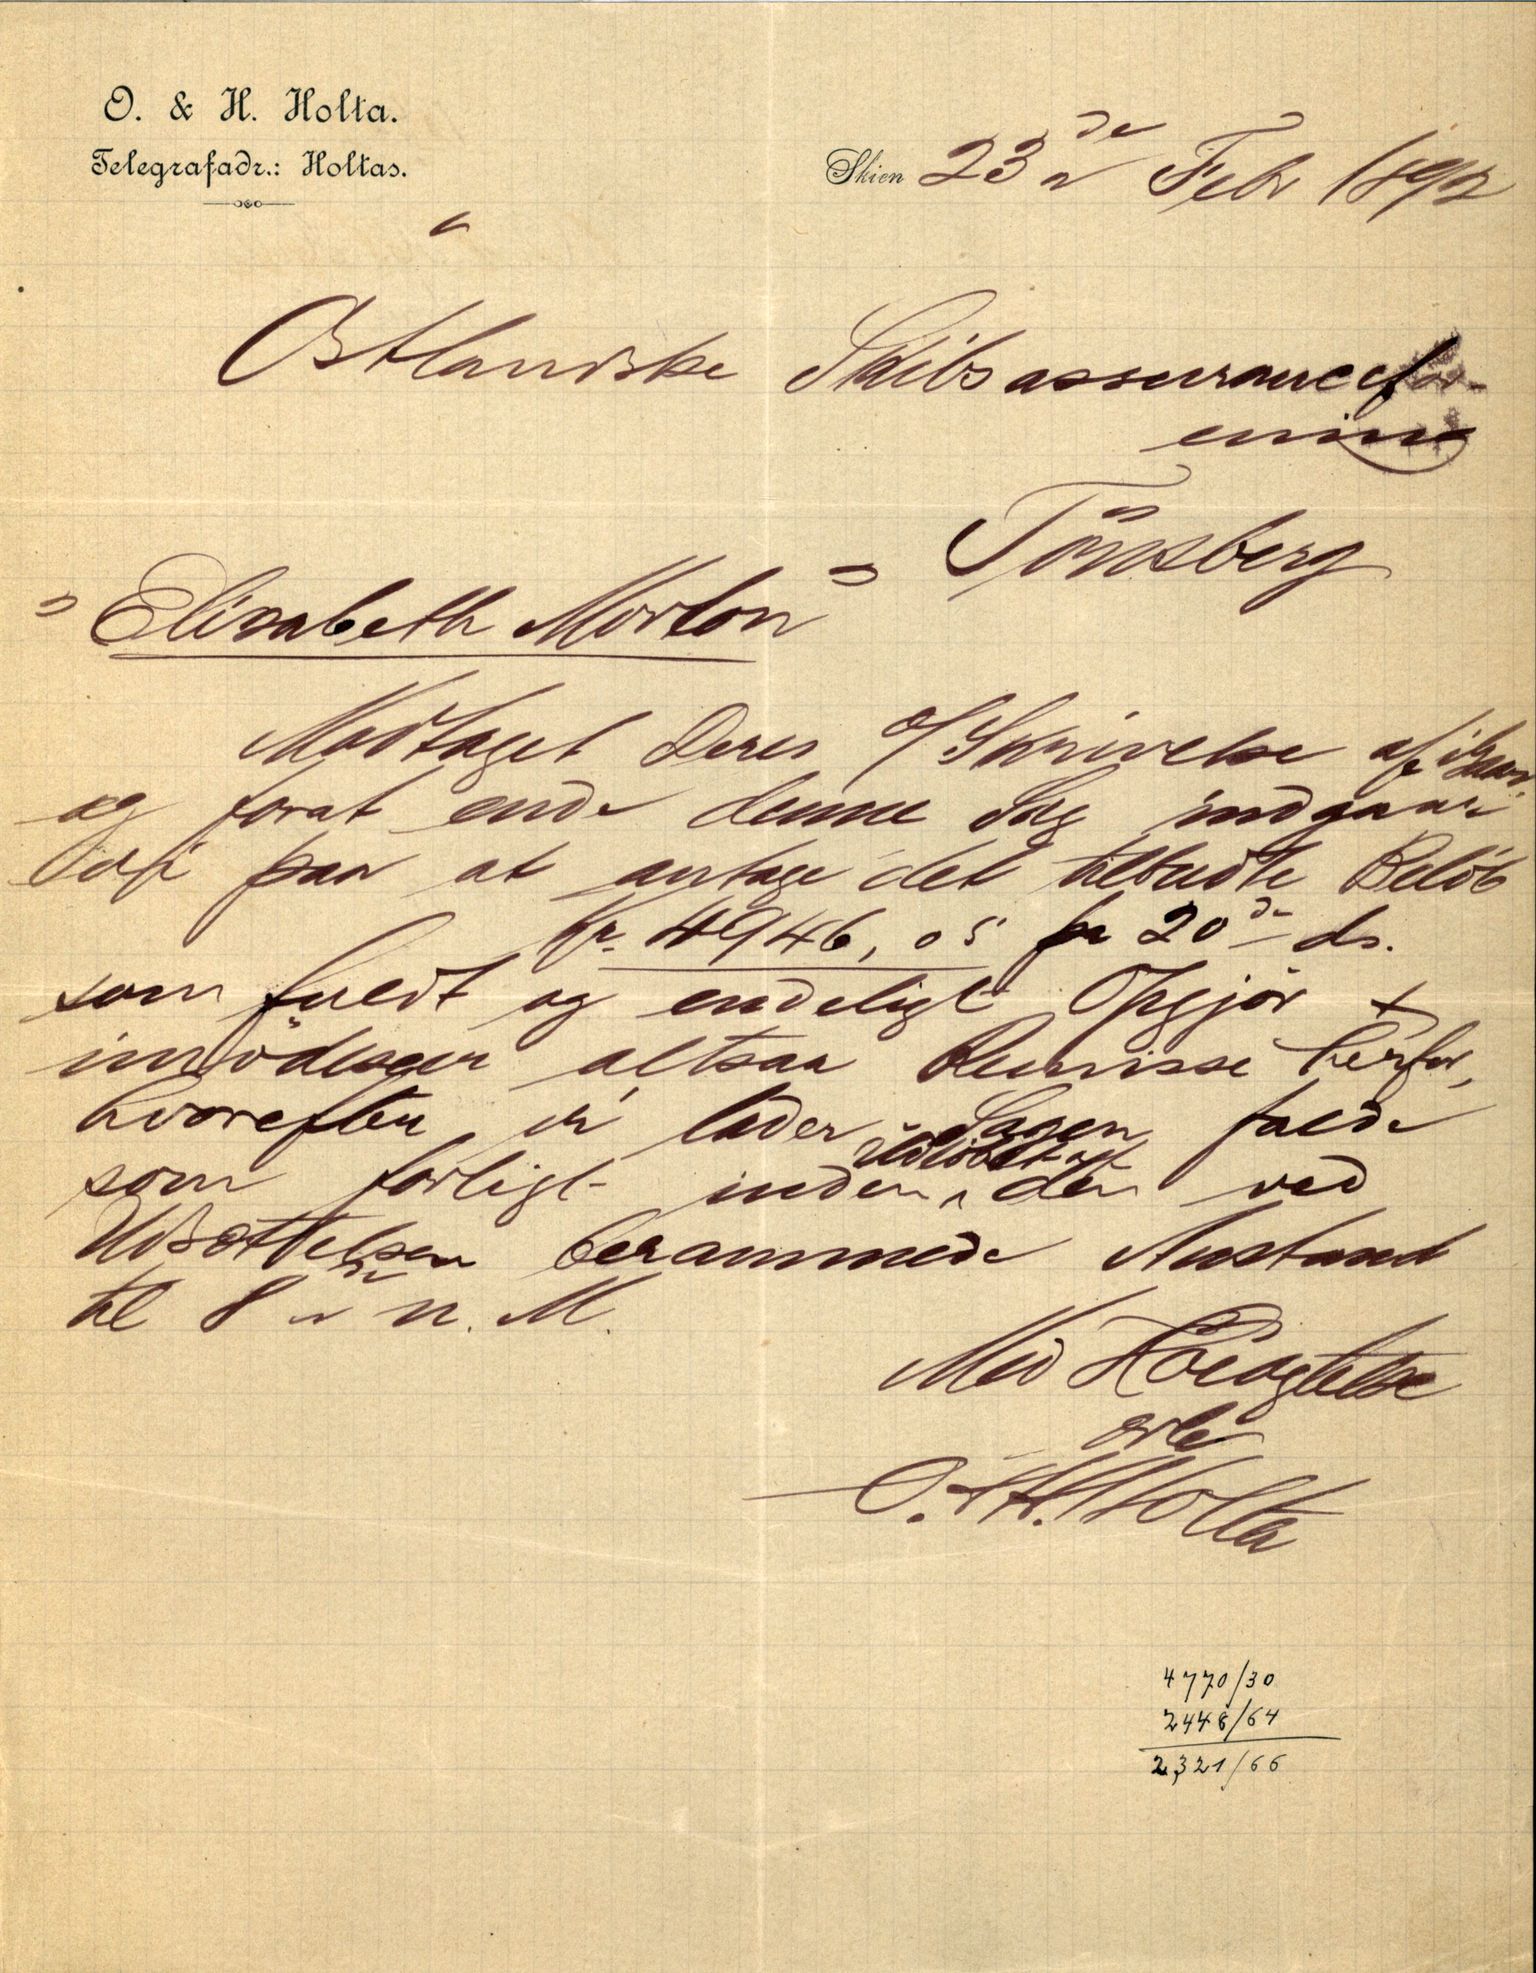 O. & H. Holta.
Telegrafadr.: Holtas.
Skien 23de Febr 1892
Østlandske Skibsassurancefor-
ening
Tönsberg
"Elisabeth Morton"
Modtaget Deres o/Skrivelse af igaar
og forat ende denne Sag indgaar
vi paa at antage det tilbudte Belöb
Kr. 4946,05 pr 20de ds.
som fuldt og endeligt Opgjör &
imödeser altsaa Remisse herfor,
hvorefter vi lader Sagen falde
som forligt inden Udlöbet af den ved
Udsættelsen berammede Anstand
til 8de n. M.
Med Höiagtelse
O. & H. Holta
4770/30
2448/64
2321/66